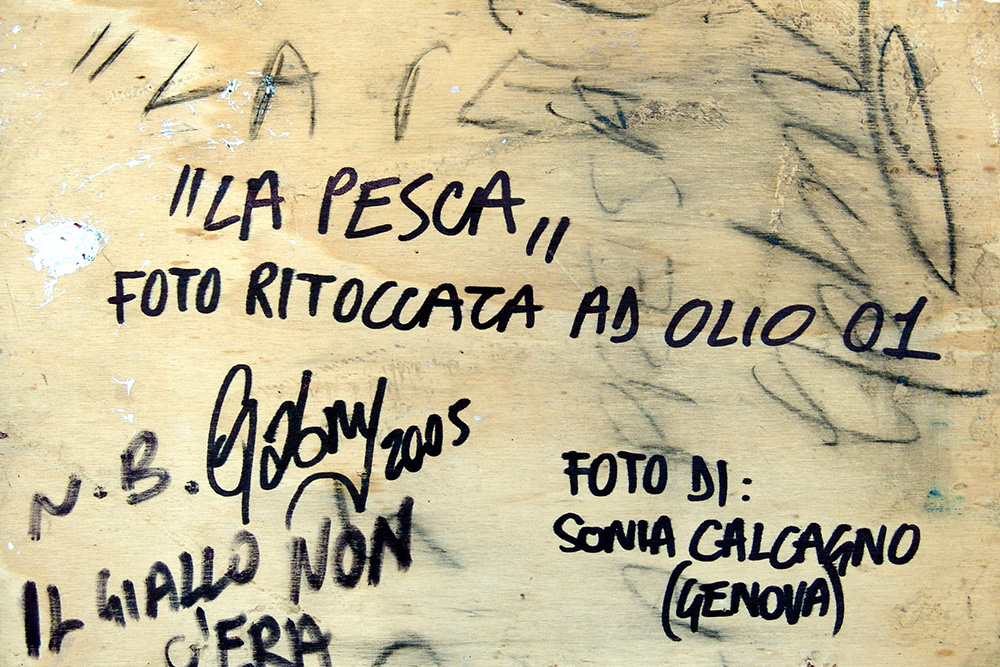 "LA PESCA"
FOTO RITOCCATA AD OLIO 01
2005
N.B.
IL GIALLO NON
C'ERA
FOTO DI:
SONIA CALCAGNO
(GENOVA)